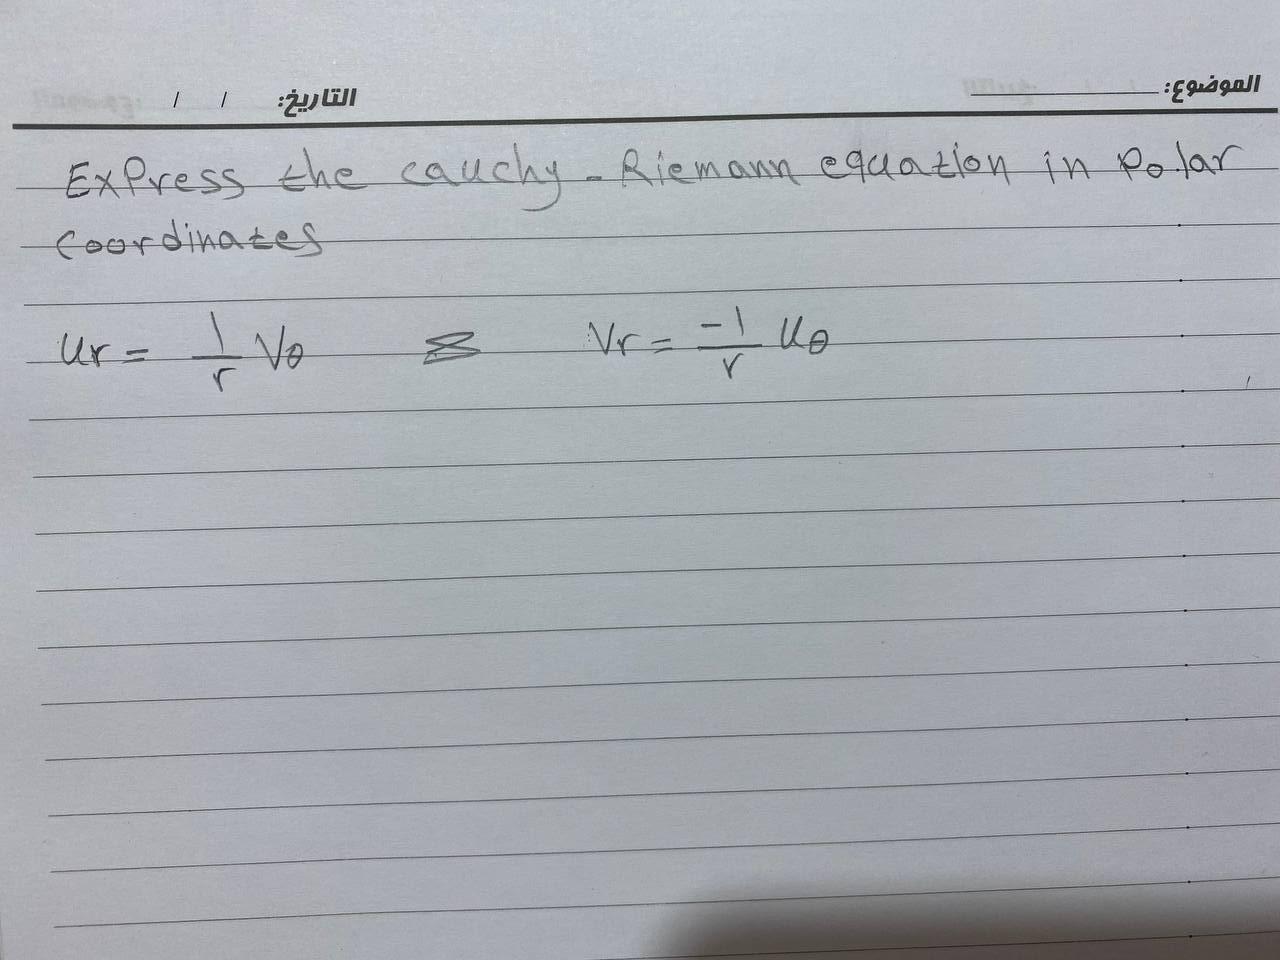 الموضوع:
التاريخ: / /
Express the cauchy-Riemann equation in Polar
coordinates
Ur = 1/r Vθ & Vr = -1/r Uθ